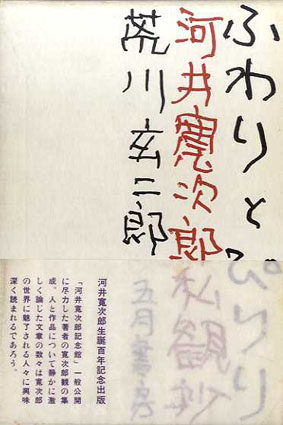 ふわりと
河井寛次郎
私観抄
荒川玄二郎
五月書房
河井寛次郎生誕百年記念出版
「河井寛次郎記念館」一般公開
に尽力した著者の寛次郎観の集
成。人と作品について静かに激
しく論じた文章の数々は寛次郎
の世界に魅了される人々に興味
深く読まれるであろう。